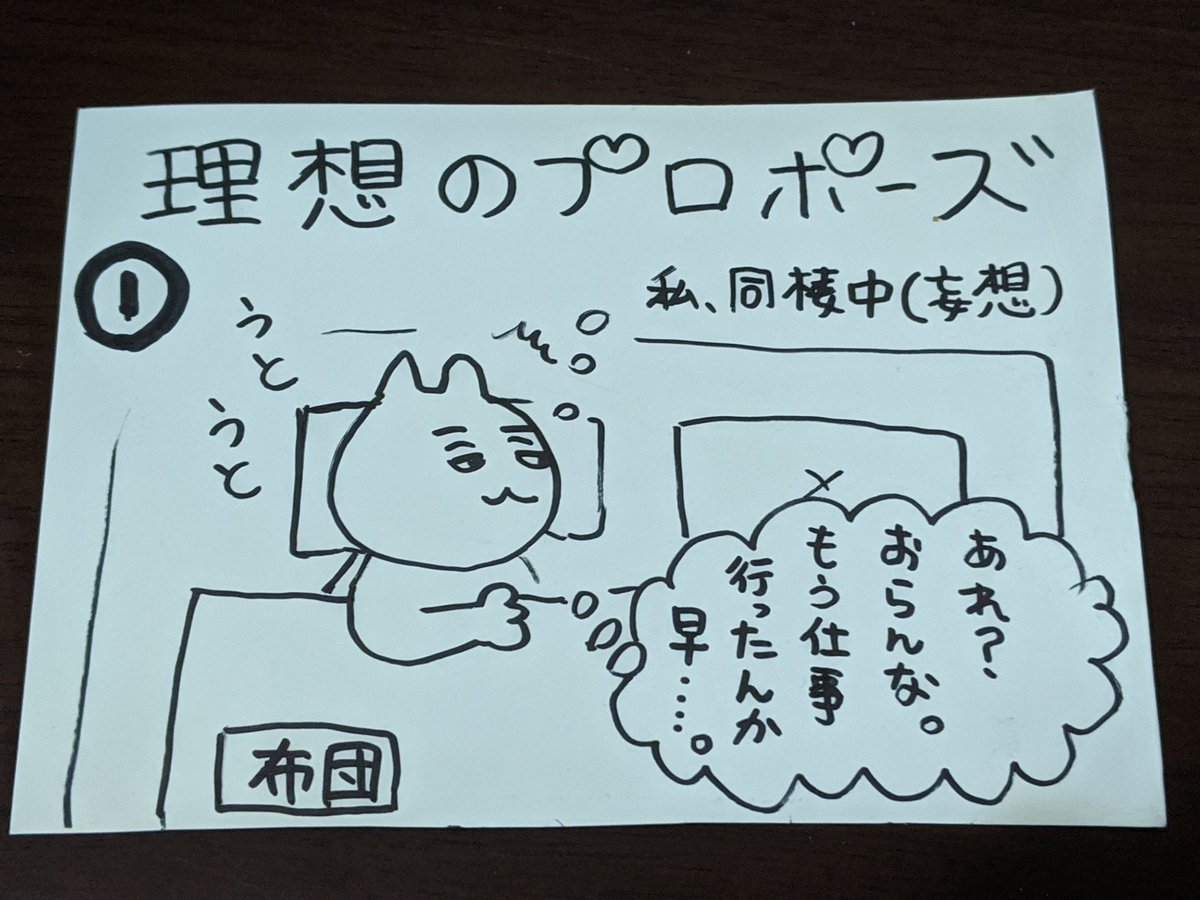 理想のプロポーズ
①
私、同棲中(妄想)
うと
うと
あれ?
おらんな。
もう仕事
行ったんか
早……。
布団